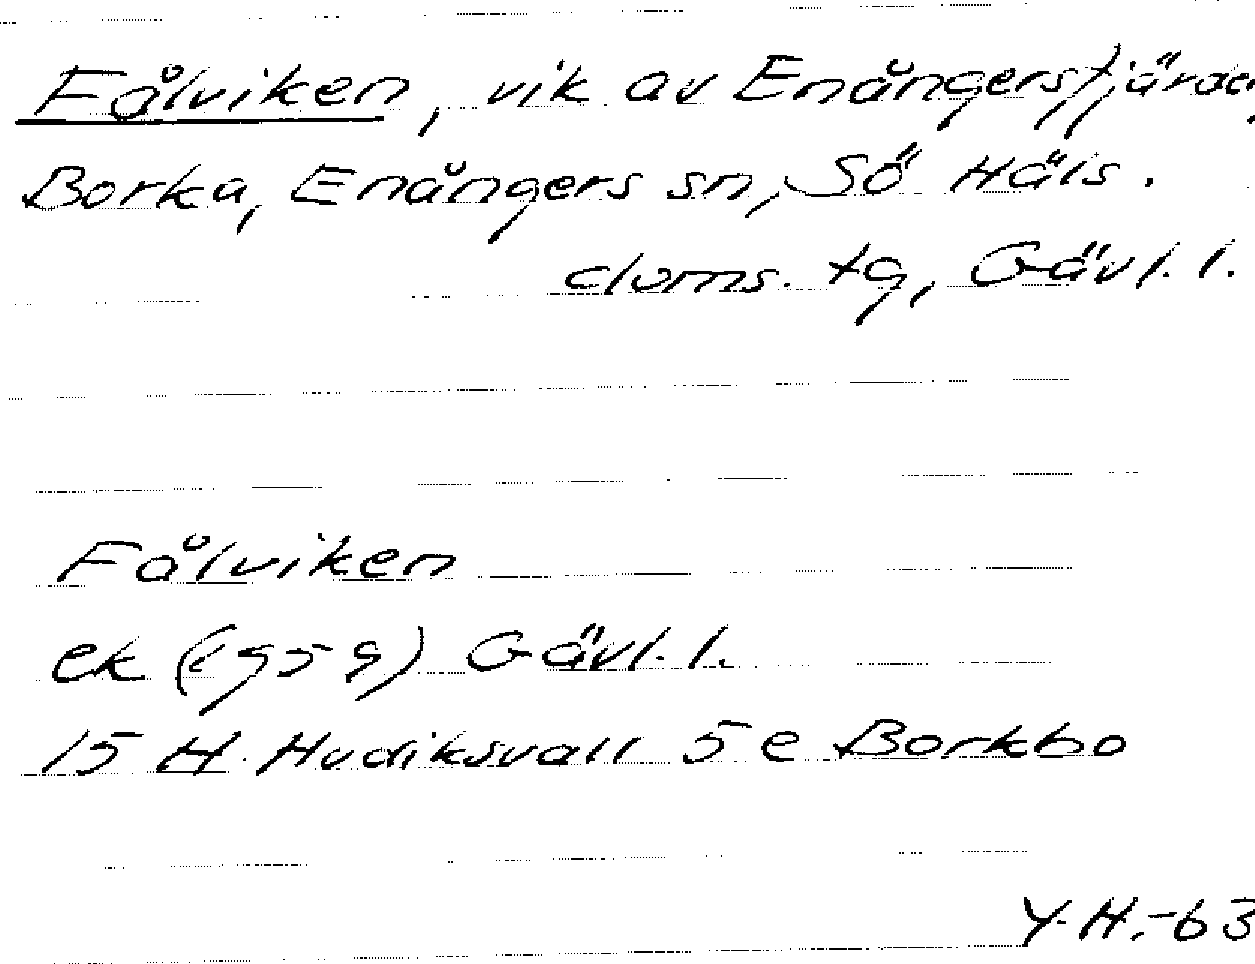 Fålviken, vik av Enångersfjärden,
Borka, Enångers sn, Sö Häls.
doms. tg, Gävl. l.
Fålviken
ek (1959) Gävl. l.
15 H Hudiksvall 5 e Borkbo
Y.H.-63